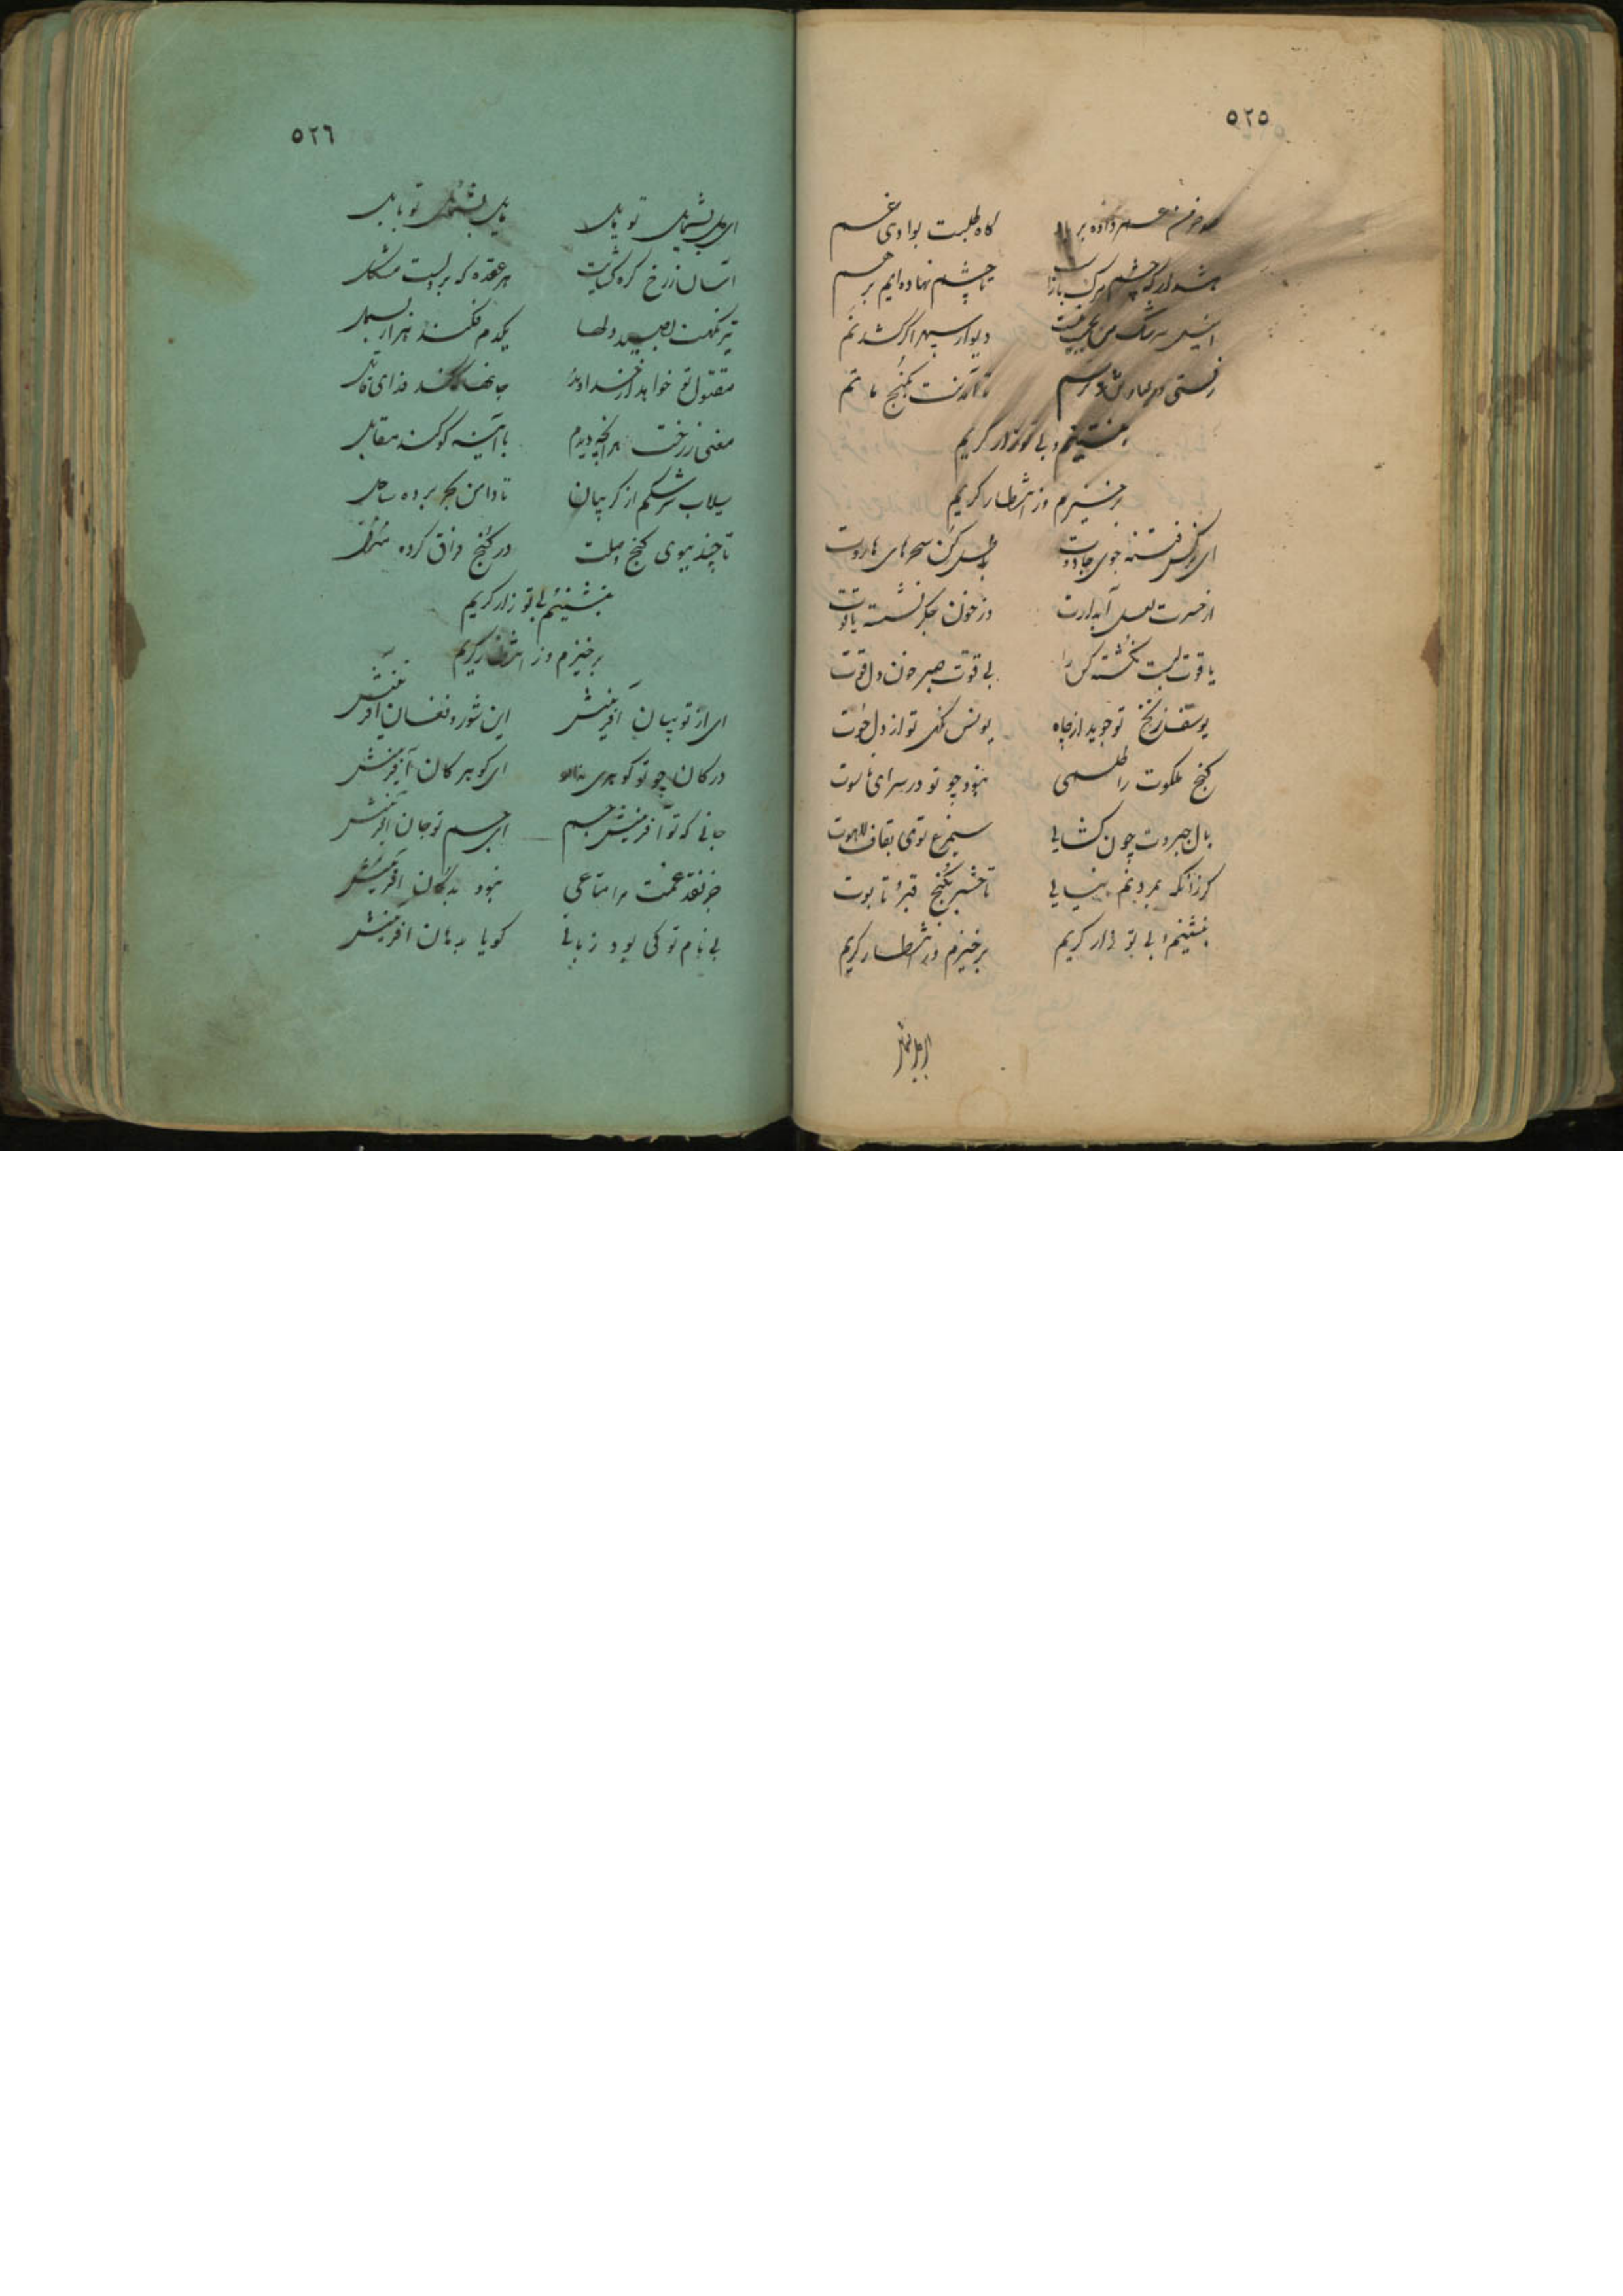 ٥٢٥
صد خرمن عمر داده بر کاه طلبت بوادی غم
چشم مرک تا چشم نهاده‌ایم بر هم
من دیوار سپهر اگر کشد نم
رفتی تا آمدنت بکنج ماتم
بنشینم و بی تو زار کریم
برخیزم وز انتظار کریم
ای نرکس فتنه جوی جادوت باطل کن سحرهای هاروت
از حسرت لعل آبدارت در خون جکر نشسته یاقوت
یاقوت لبت بکشته کس را بی قوت صبر خون دل قوت
یوسف زنخ تو جوید از چاه یونس تو از دل حوت
کنج ملکوت را طلسمی نبود چو تو در سرای ناسوت
بال جبروت چون کشایی سیمرغ توی بقاف لاهوت
کر زانکه بمردنم نیایی تا حشر بکنج قبر و تابوت
بنشینم و بی تو زار کریم برخیزم وز انتظار کریم
٥٢٦
ای شمایل تو مایل شمایل تو مایل
آسان ز رخ کره کشایت هر عقده که بر لبست مشکل
تیر نکهت بصید دلها یکدم فکند هزار بسمل
مقتول تو خواهد از خداوند جانها که کند فدای قاتل
معنی ز رخت هر آنچه دیدم با آینه کو کند مقابل
سیلاب سرشکم از کریبان تا دامن بحر برده ساحل
تا چند ببوی کنج وصلت در کنج فراق کرده منزل
بنشینم و بی تو زار کریم
برخیزم وز انتظار کریم
ای از تو بیان آفرینش این شور و فغان آفرینش
در کان چو تو کوهری ای کوهر کان آفرینش
جانی که تو آفرینش جسم ای جسم تو جان آفرینش
جز نقد غمت مرا متاعی نبود بدکان آفرینش
بی نام تو کی بود زبانی کویا بدهان آفرینش